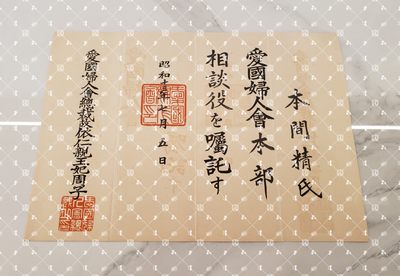 本間精氏
愛國婦人會本部
相談役を囑託す
昭和十二年七月五日
愛國婦人會總裁 依仁親王妃周子